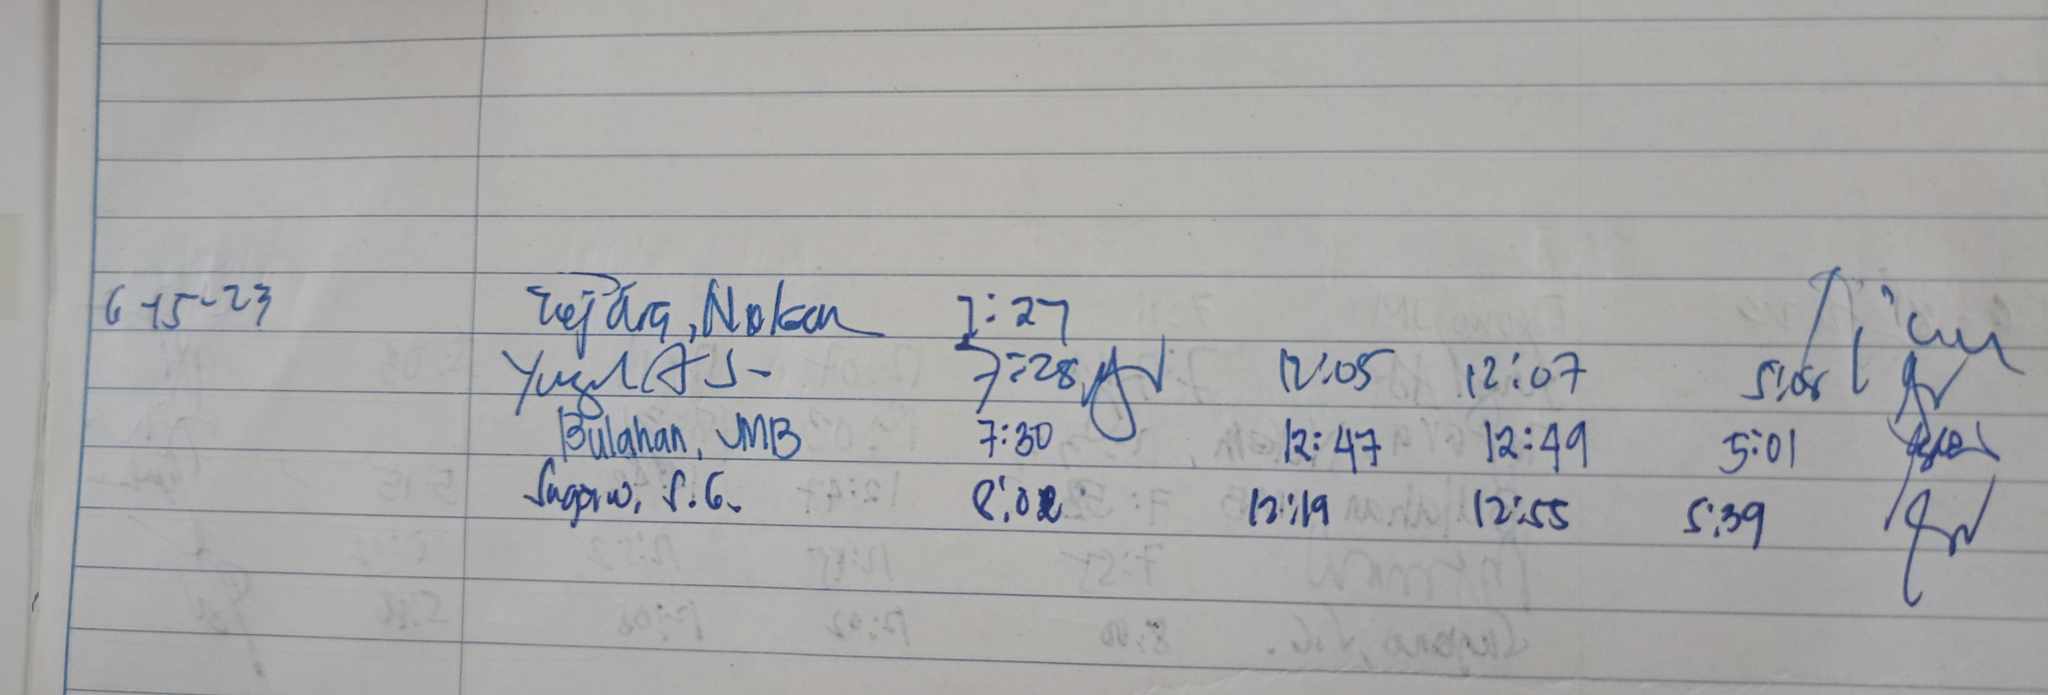 6-15-23 Tejara, Nolan 7:27
Yuzul AJ- 7:28 12:05 12:07 5:08
Bulahan, JMB 7:30 12:47 12:49 5:01
S.G. 8:02 12:19 12:55 5:39